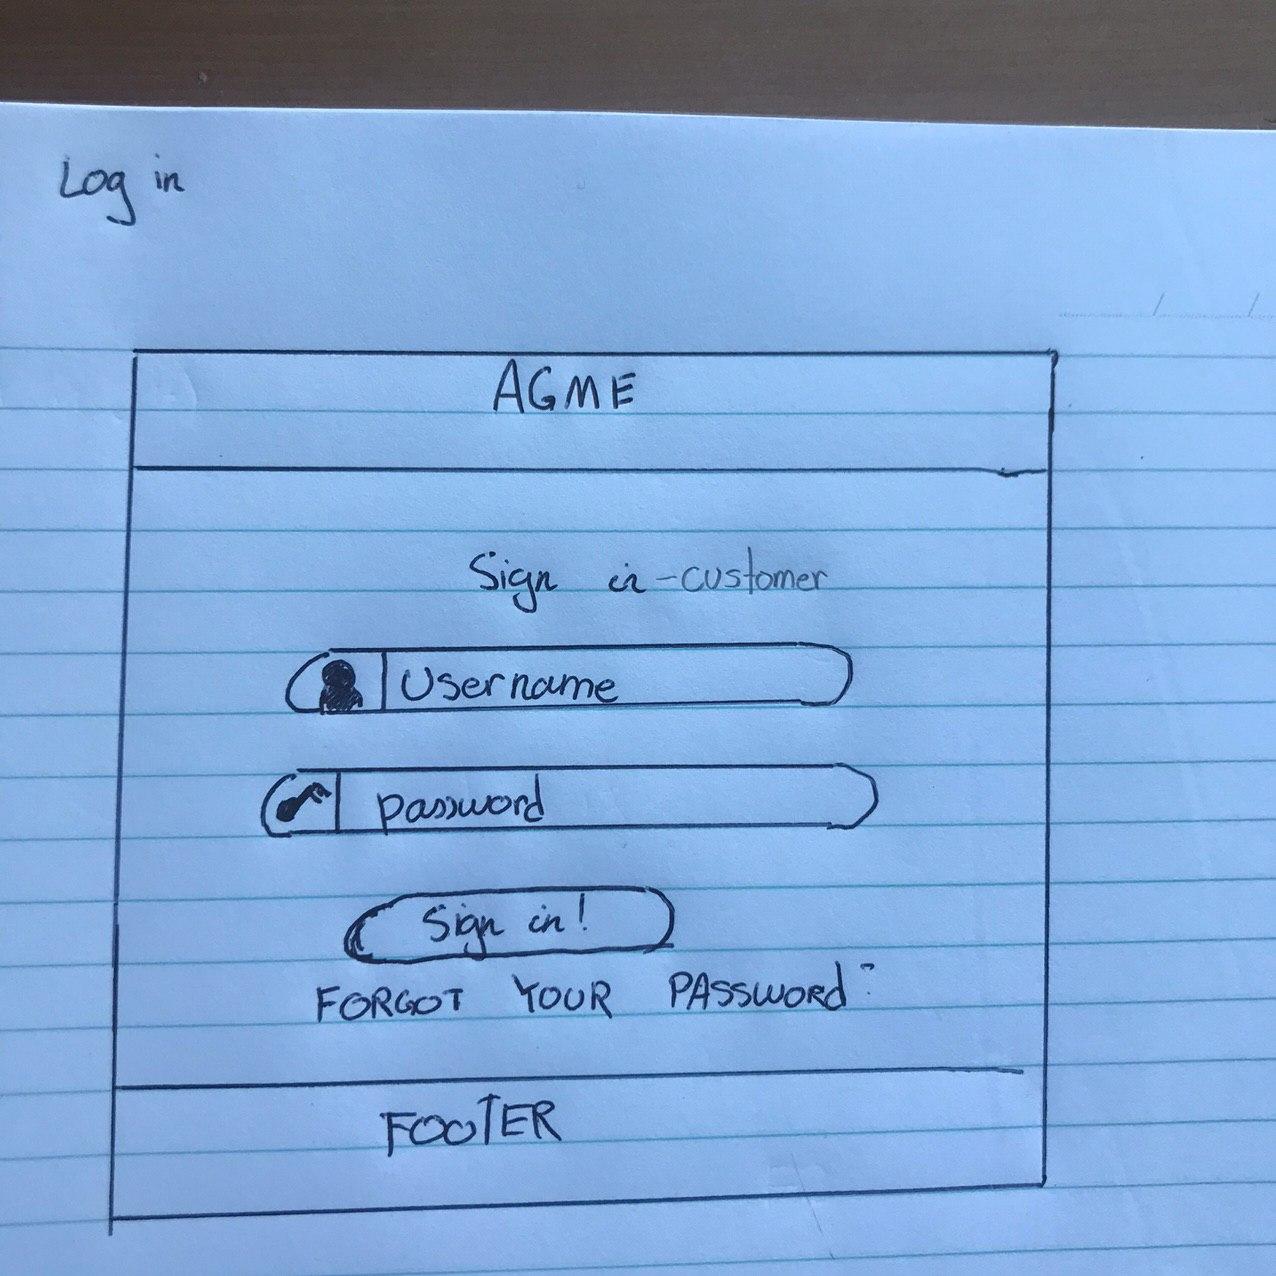 Log in
AGME
Sign in - customer
Username
password
Sign in!
FORGOT YOUR PASSWORD?
FOOTER